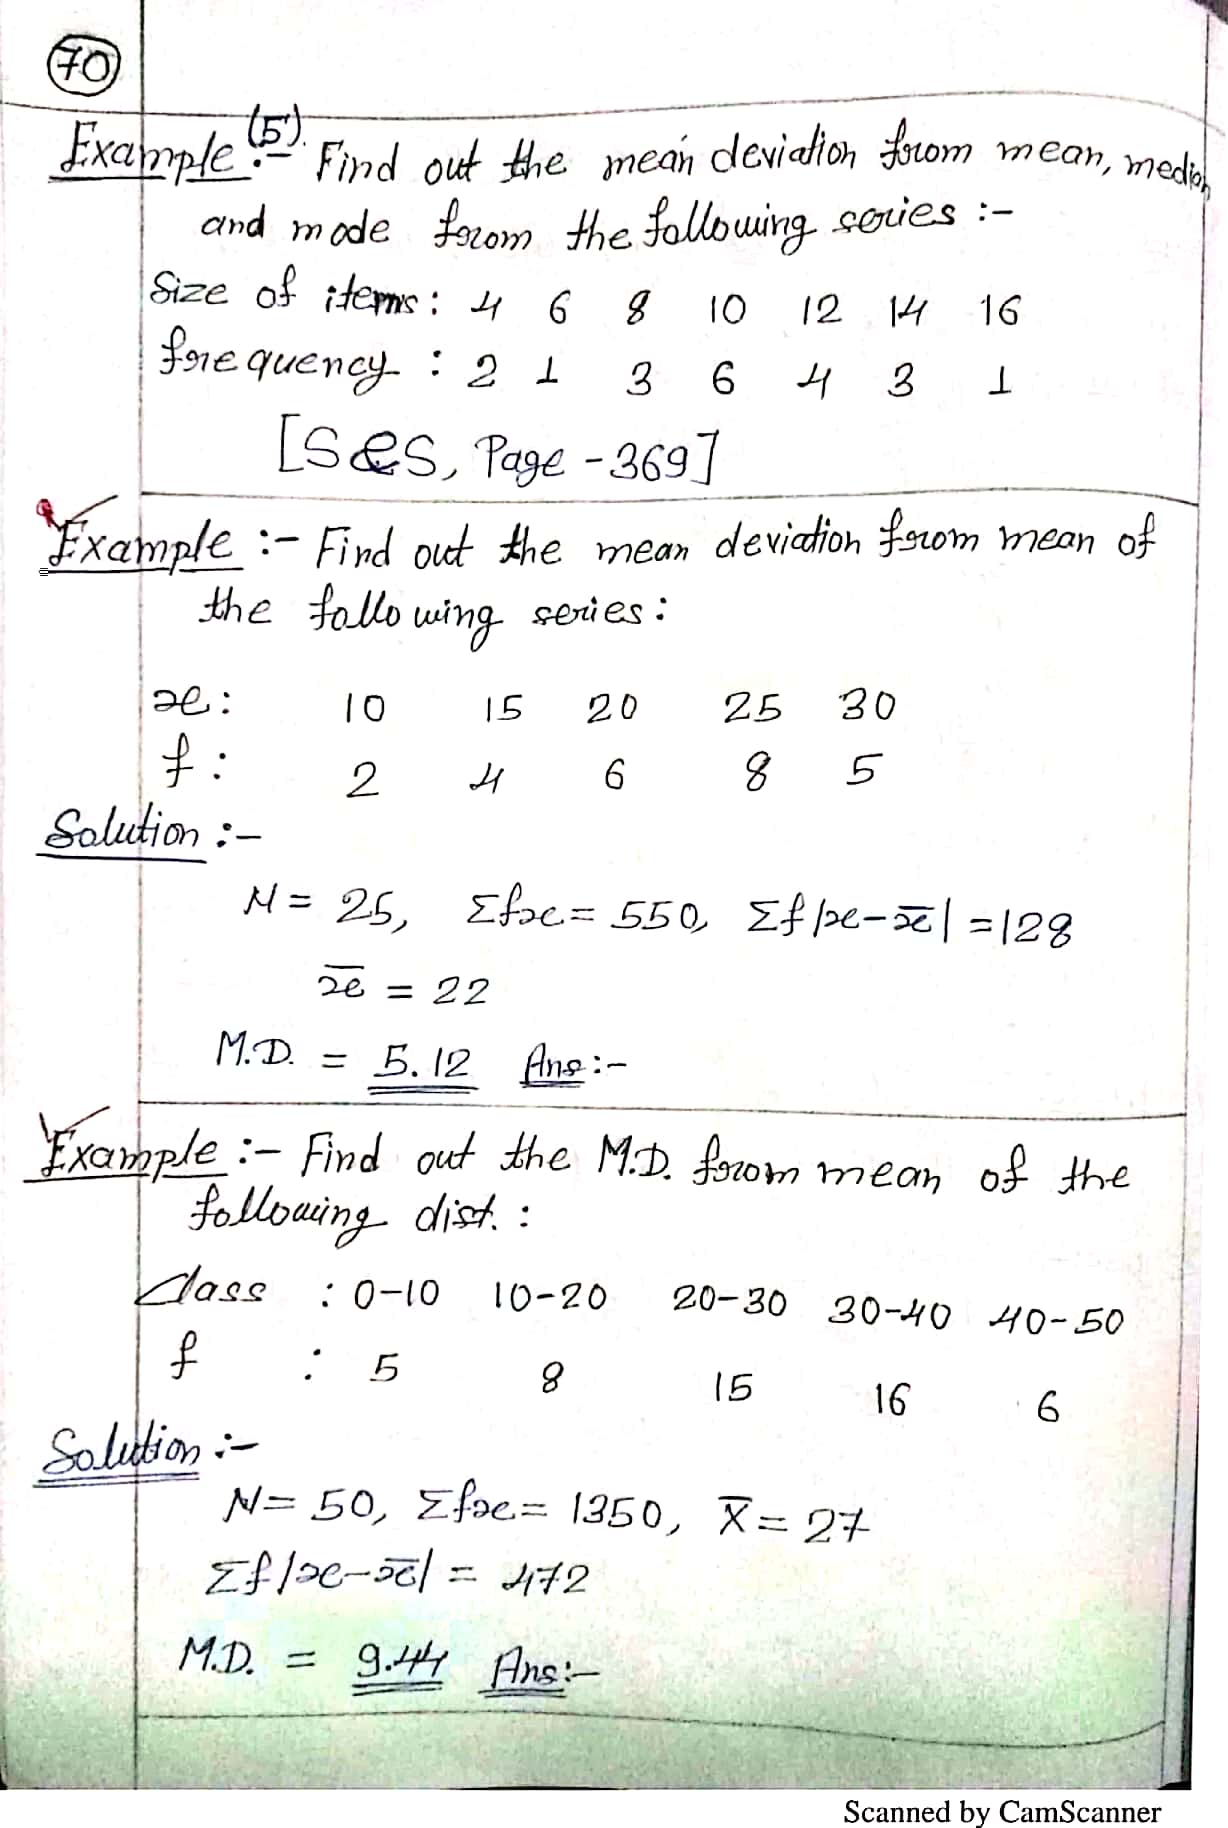 70
Example (5):- Find out the mean deviation from mean, median
and mode from the following series :-
Size of items : 4 6 8 10 12 14 16
frequency : 2 1 3 6 4 3 1
[S&S, Page - 369]
Example :- Find out the mean deviation from mean of
the following series :
x : 10 15 20 25 30
f : 2 4 6 8 5
Solution :-
N = 25, Σfx = 550, Σf|x-x̄| = 128
x̄ = 22
M.D. = 5.12 Ans :-
Example :- Find out the M.D. from mean of the
following dist. :
Class : 0-10 10-20 20-30 30-40 40-50
f : 5 8 15 16 6
Solution :-
N = 50, Σfx = 1350, X̄ = 27
Σf|x-x̄| = 472
M.D. = 9.44 Ans :-
Scanned by CamScanner